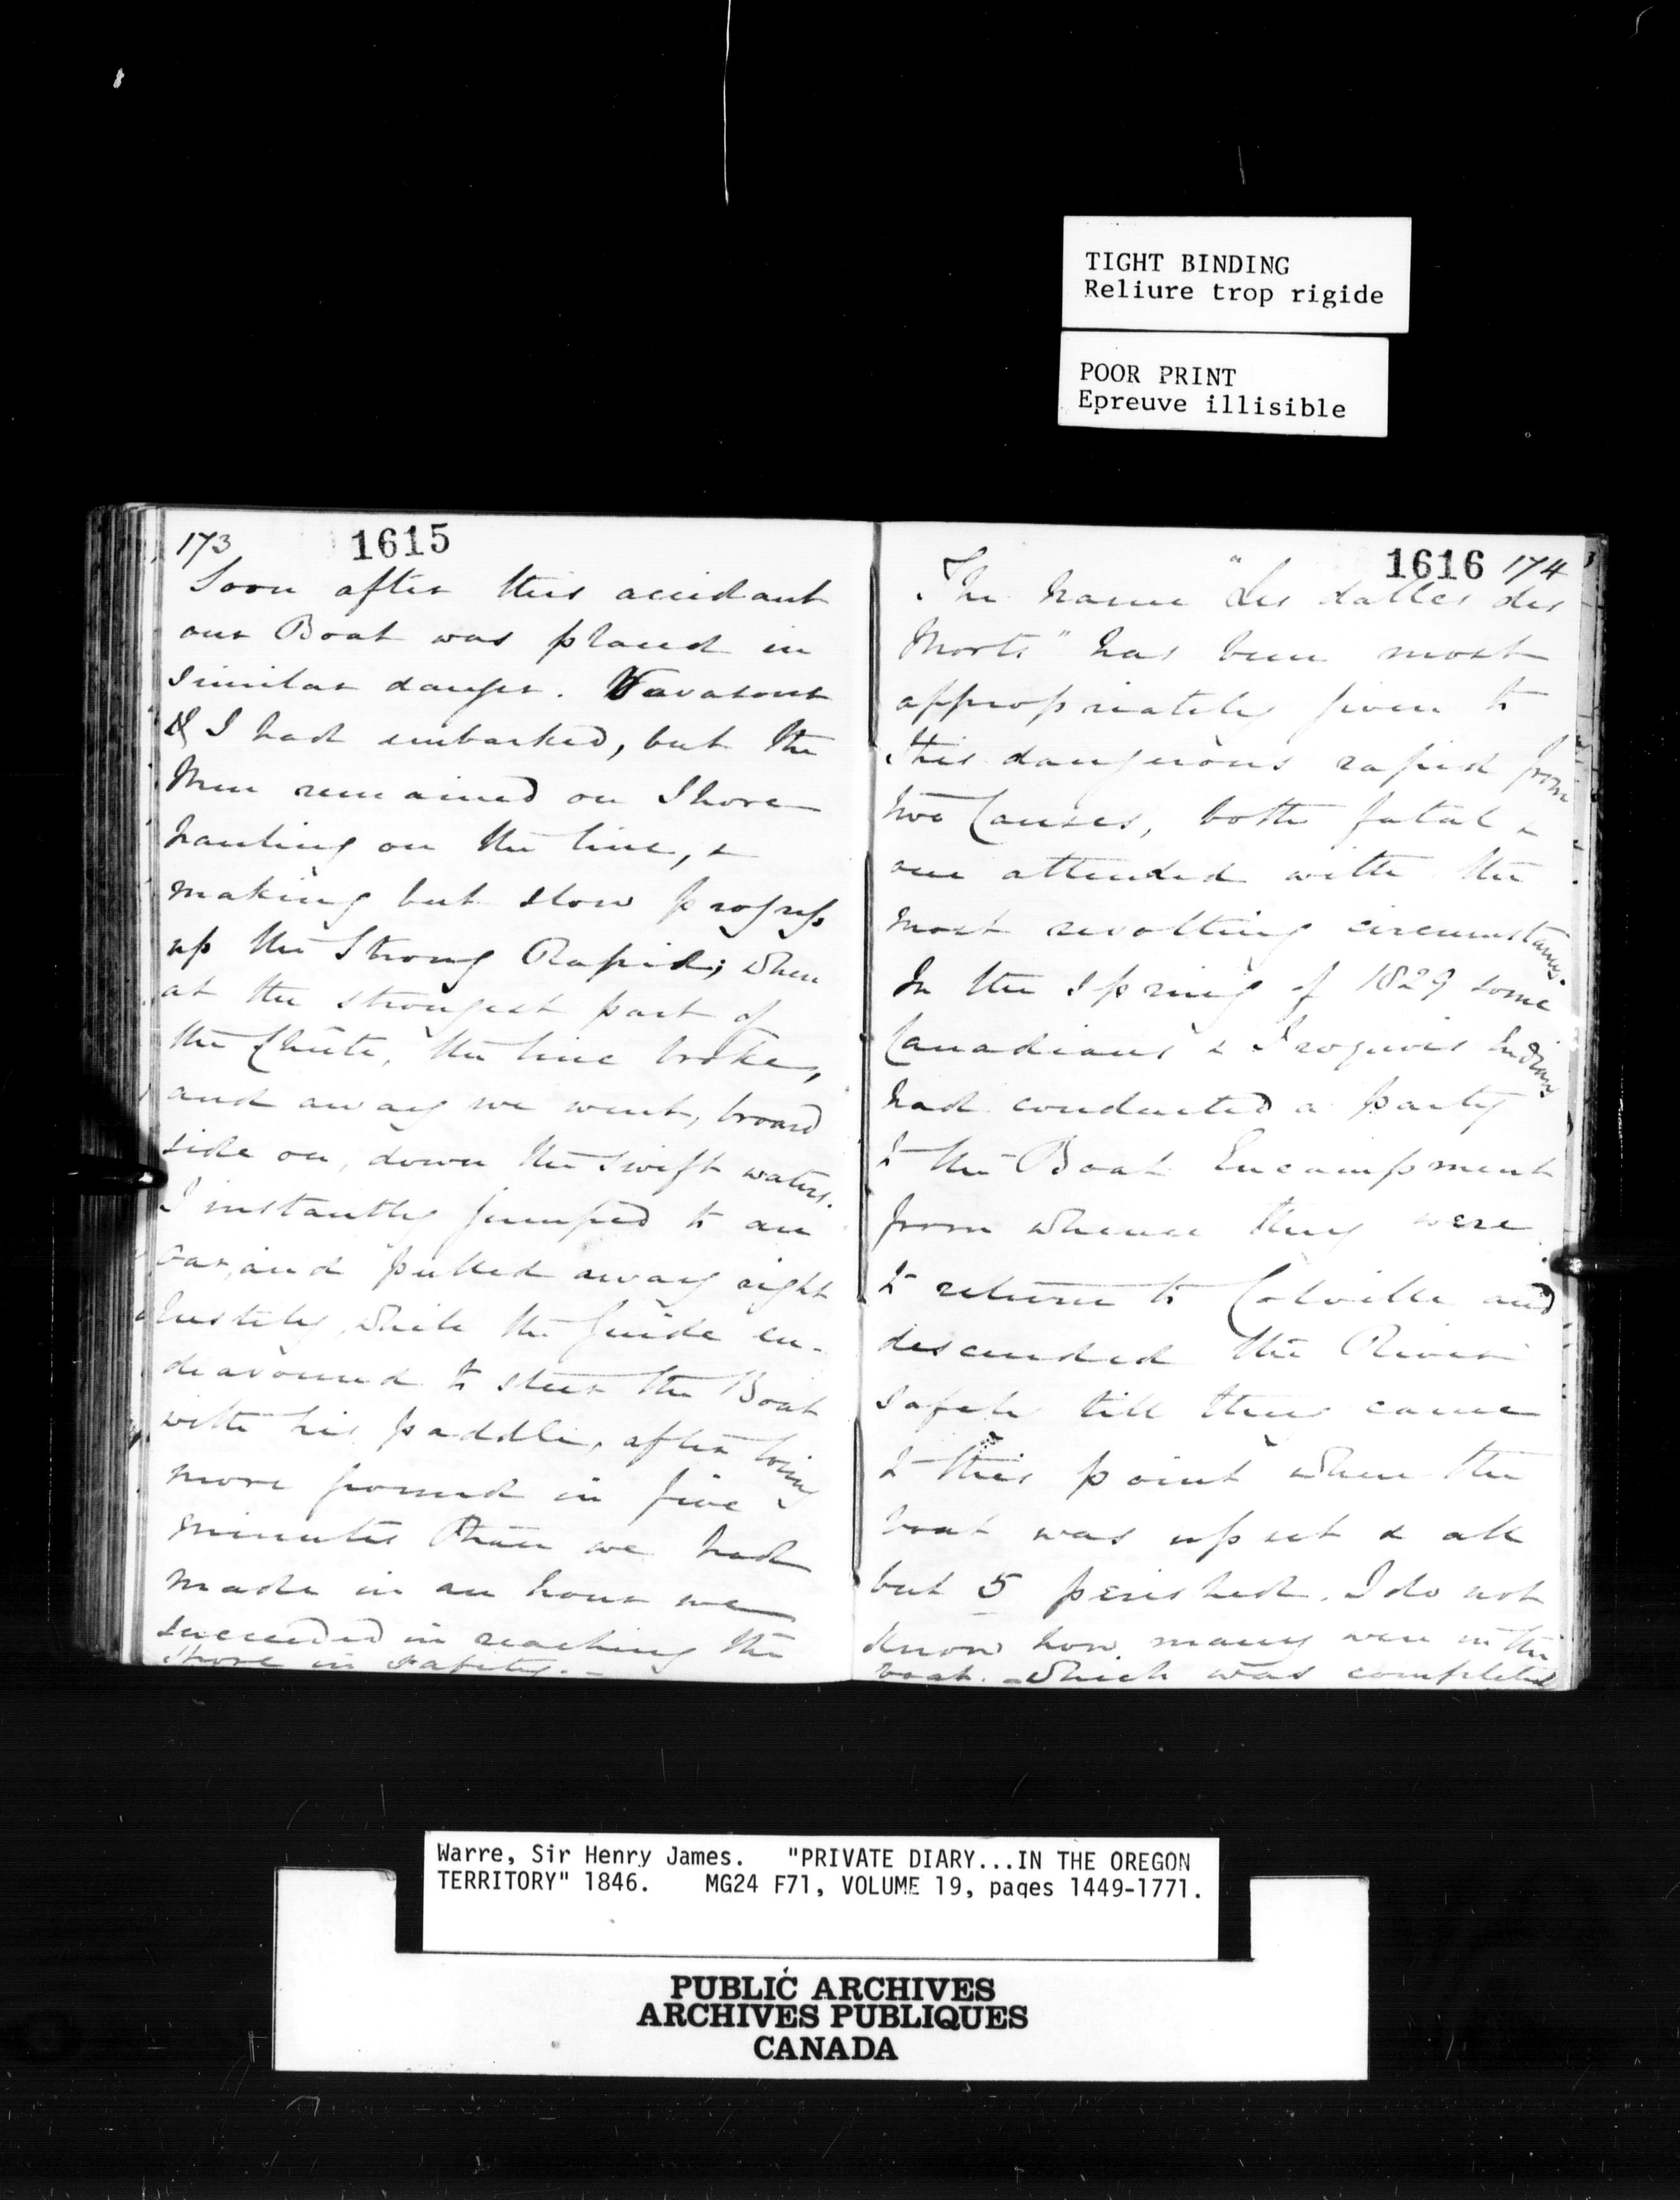 TIGHT BINDING
Reliure trop rigide
POOR PRINT
Epreuve illisible
173 1615
Soon after this accidant
our Boat was placed in
similar danger. Vavasour
& I had embarked, but the
Men remained on Shore
hauling on the line, &
making but slow progress
up the Strong Rapid; when
at the strongest part of
the Chûte, the line broke,
and away we went, broad
side on, down the swift waters.
I instantly jumped to an
oar, and pulled away right
lustily while the Guide en-
deavoured to steer the Boat
with his paddle, after losing
more ground in five
minutes than we had
made in an hour we
succeeded in reaching the
Shore in safety. -
1616 174
The name "Les dalles des
Morts" has been most
appropriately given to
this dangerous rapid from
two Causes, both fatal &
one attended with the
most revolting circumstances.
In the Spring of 1829 some
Canadians & Iroquois Indians
had conducted a party
to the Boat Encampment
from whence they were
to return to Colville and
descended the River
safely till they came
to this point when the
boat was upset & all
but 5 perished. I do not
know how many were in the
boat. - which was completed
Warre, Sir Henry James. "PRIVATE DIARY...IN THE OREGON
TERRITORY" 1846. MG24 F71, VOLUME 19, pages 1449-1771.
PUBLIC ARCHIVES
ARCHIVES PUBLIQUES
CANADA